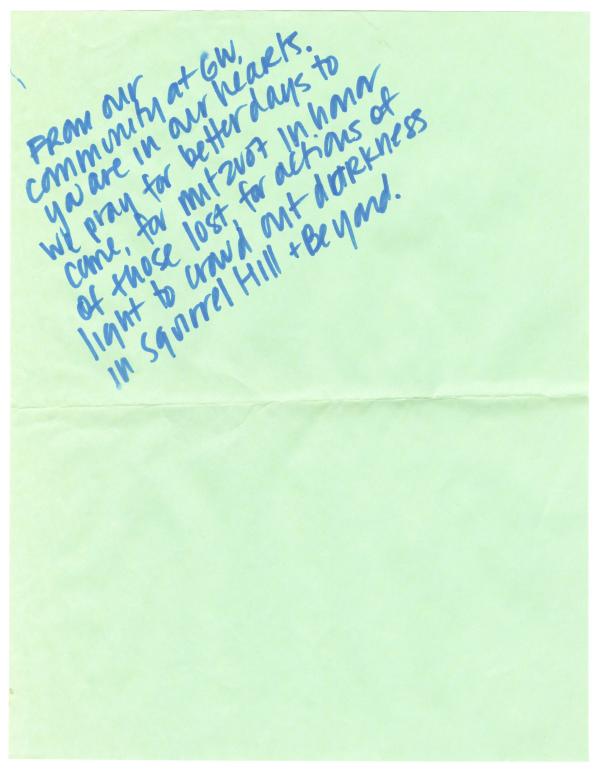 From our
community at GW,
you are in our hearts.
We pray for better days to
come, for mitzvot in honor
of those lost for actions of
light to crowd out darkness
in Squirrel Hill + Beyond.